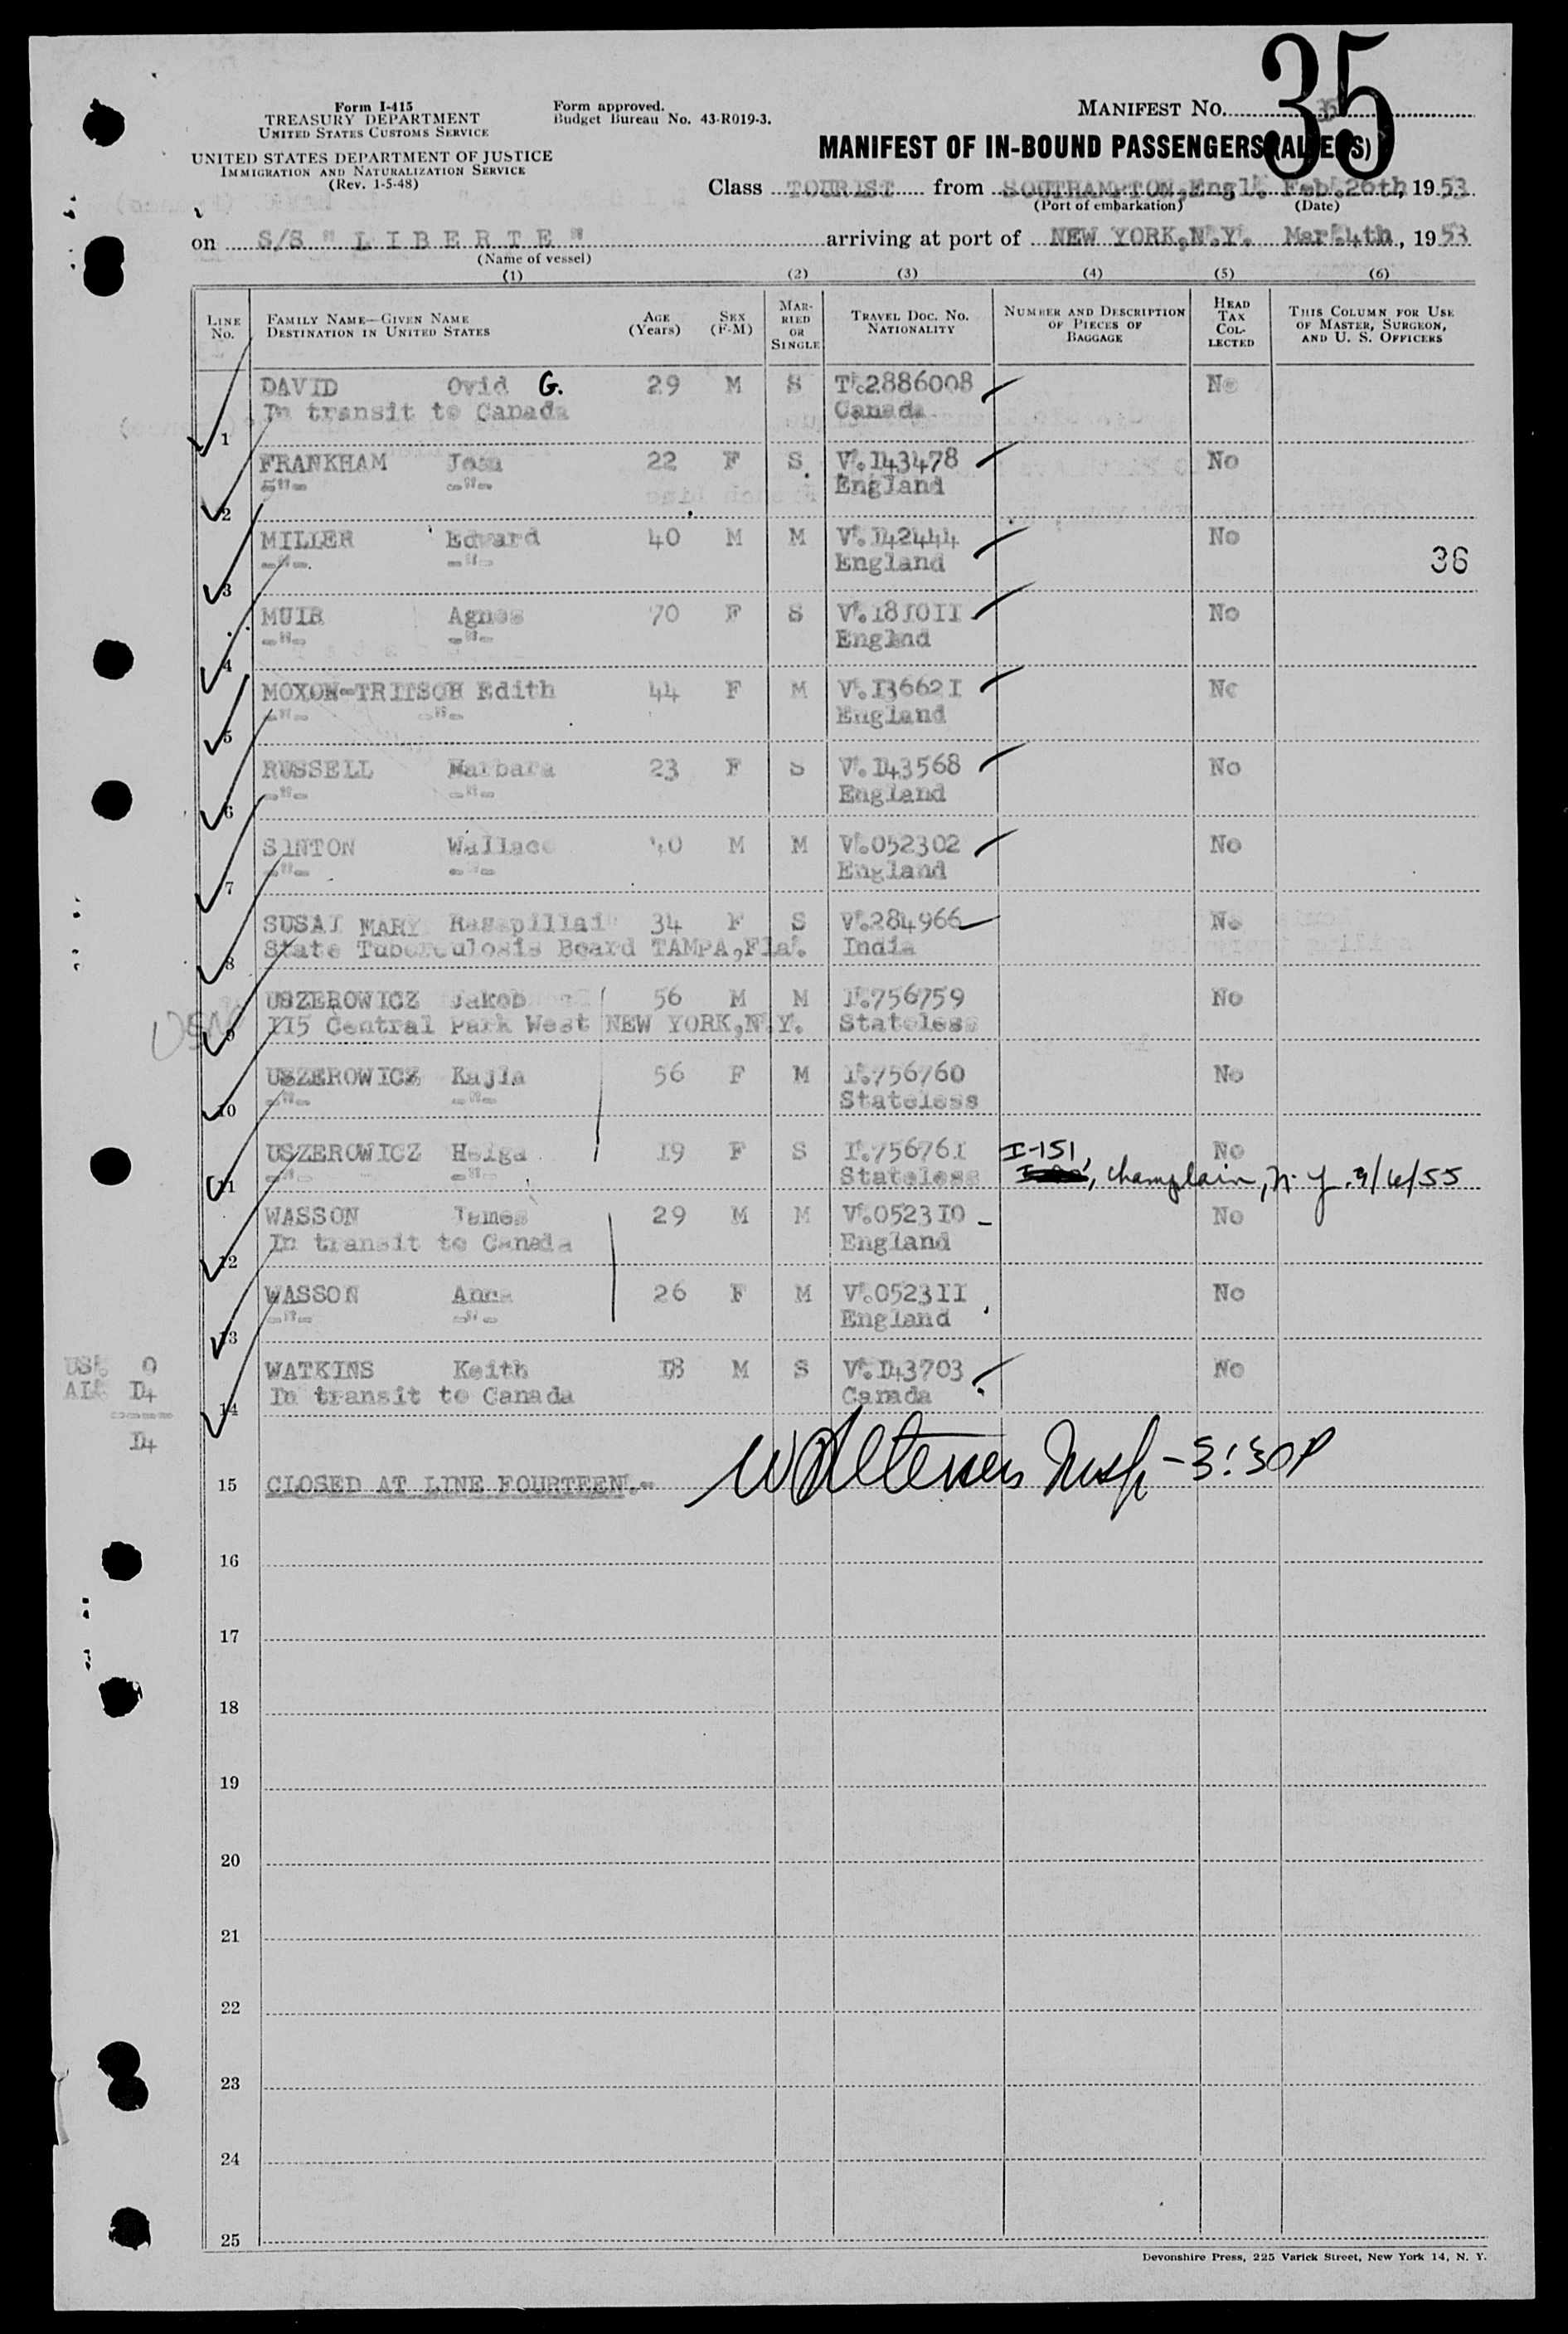 35
Form I-415
TREASURY DEPARTMENT
UNITED STATES CUSTOMS SERVICE
UNITED STATES DEPARTMENT OF JUSTICE
IMMIGRATION AND NATURALIZATION SERVICE
(Rev. 1-5-48)
Form approved.
Budget Bureau No. 43-R019-3.
MANIFEST NO. 35
MANIFEST OF IN-BOUND PASSENGERS (ALIENS)
Class TOURIST from SOUTHAMPTON, Engl. Feb. 26th, 1953
(Port of embarkation) (Date)
on S/S " L I B E R T E " arriving at port of NEW YORK, N.Y. Mar. 4th, 1953
(Name of vessel)
(1) (2) (3) (4) (5) (6)
LINE No. FAMILY NAME—GIVEN NAME DESTINATION IN UNITED STATES AGE (Years) SEX (F-M) MARRIED OR SINGLE TRAVEL DOC. NO. NATIONALITY NUMBER AND DESCRIPTION OF PIECES OF BAGGAGE HEAD TAX COLLECTED THIS COLUMN FOR USE OF MASTER, SURGEON, AND U. S. OFFICERS
DAVID Ovid G. 29 M S T.2886008 No
1 In transit to Canada Canada
FRANKHAM Jean 22 F S V. I43478 No
2 -"- -"- England
MILLER Edward 40 M M V. I42444 No
3 -"- -"- England 36
MUIR Agnes 70 F S V. 181011 No
4 -"- -"- England
MOXON-TRITSCH Edith 44 F M V. I36621 No
5 -"- -"- England
RUSSELL Barbara 23 F S V. I43568 No
6 -"- -"- England
SINTON Wallace 40 M M V.052302 No
7 -"- -"- England
SUSAI MARY Rasapillai 34 F S V.284966 No
8 State Tuberculosis Board TAMPA, Fla. India
USZEROWICZ Jakob 56 M M I.756759 No
9 115 Central Park West NEW YORK, N.Y. Stateless
USZEROWICZ Kajla 56 F M I.756760 No
10 -"- -"- Stateless
USZEROWICZ Helga 19 F S I.756761 I-151, No
11 -"- -"- Stateless , Champlain, N.Y. 9/6/55
WASSON James 29 M M V.052310 No
12 In transit to Canada England
WASSON Anna 26 F M V.052311 No
13 -"- -"- England
WATKINS Keith 18 M S V. I43703 No
14 In transit to Canada Canada
US. 0
AL. 14
14
15 CLOSED AT LINE FOURTEEN.- Insp- 3:30P
16
17
18
19
20
21
22
23
24
25
Devonshire Press, 225 Varick Street, New York 14, N. Y.